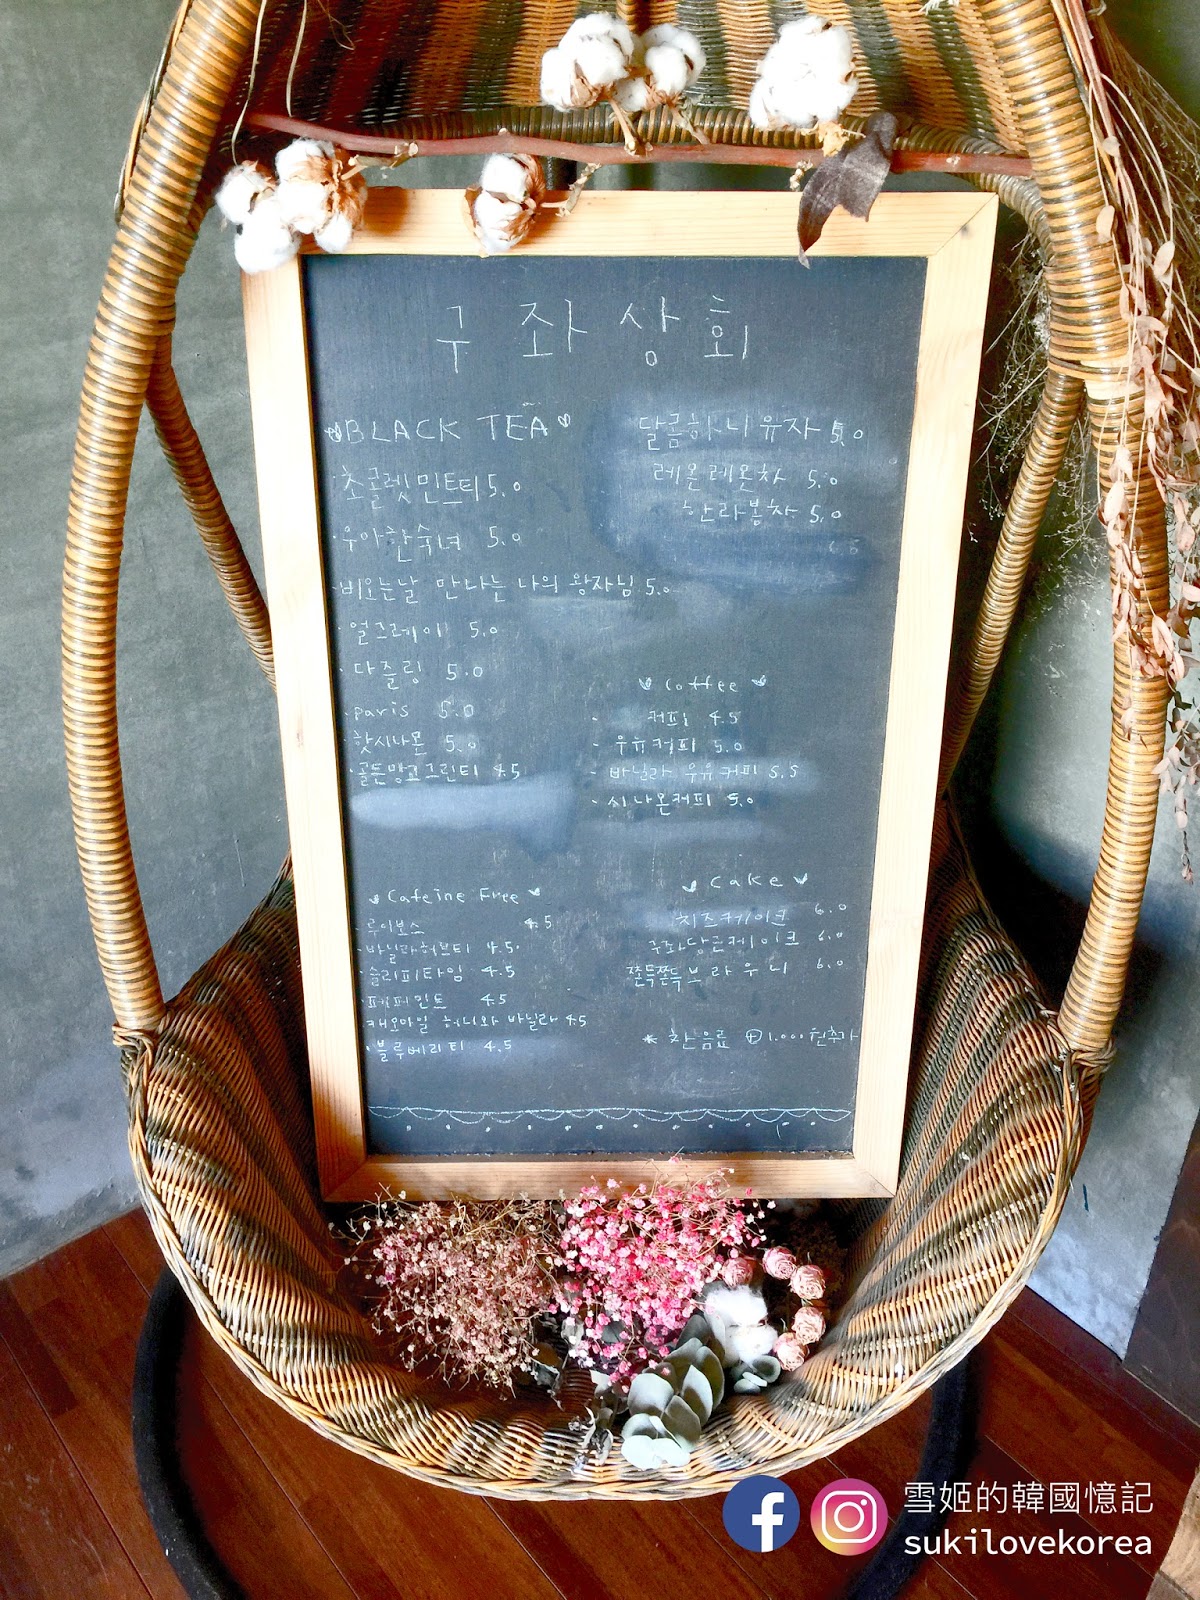 구좌상회
BLACK TEA
· 초콜렛민트티 5.0
· 우아한숙녀 5.0
· 비오는날 만나는 나의 왕자님 5.0
· 얼그레이 5.0
· 다즐링 5.0
· paris 5.0
· 핫시나몬 5.0
· 골든망고그린티 4.5
달콤하니유자 5.0
레몬레몬차 5.0
한라봉차 5.0
Coffee
- 커피 4.5
- 우유커피 5.0
- 바닐라 우유커피 5.5
- 시나몬커피 5.0
Cafeine Free
· 루이보스 4.5
· 바닐라허브티 4.5
· 슬리피타임 4.5
· 페퍼민트 4.5
· 캐모마일 허니와 바닐라 4.5
· 블루베리티 4.5
Cake
치즈케이크 6.0
구좌당근케이크 6.0
쫄득쫄득브라우니 6.0
* 찬음료 ⊕1.000원추가
雪姬的韓國憶記
sukilovekorea